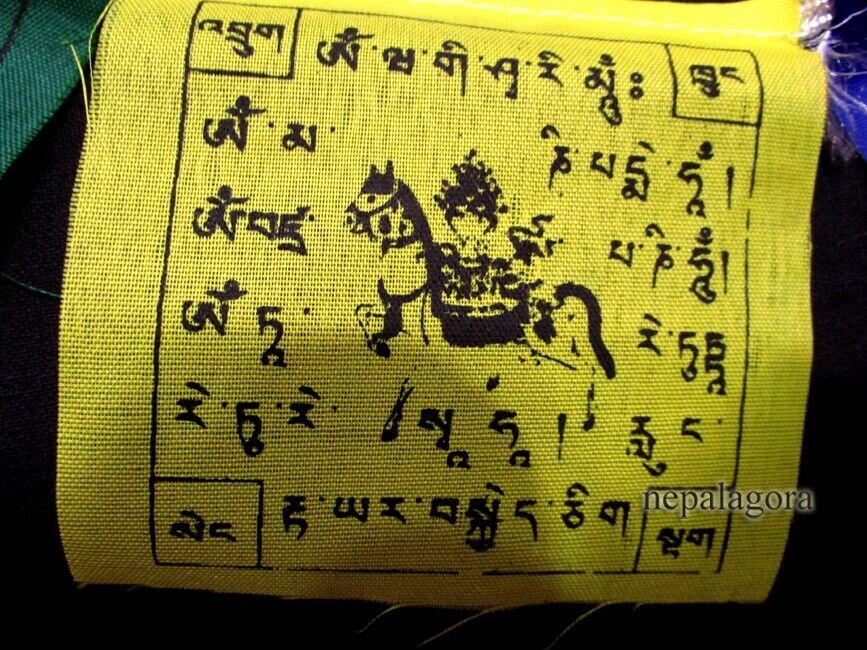 འབྲུག ཨོཾ་ཝ་གི་ཤྭ་རི་མུཾ༔ ཁྱུང
ཨོཾ་མ་ ཎི་པདྨེ་ཧཱུྃ།
ཨོཾ་བཛྲ་ པ་ཎི་ཧཱུྃ
ཨོཾ་ཏཱ་ རེ་ཏུཏྟཱ
རེ་ཏུ་རེ་ སྭཱ་ཧཱ། རླུང་
སེང རྟ་ཡར་བསྐྱེད་ཅིག སྟག
nepalagora